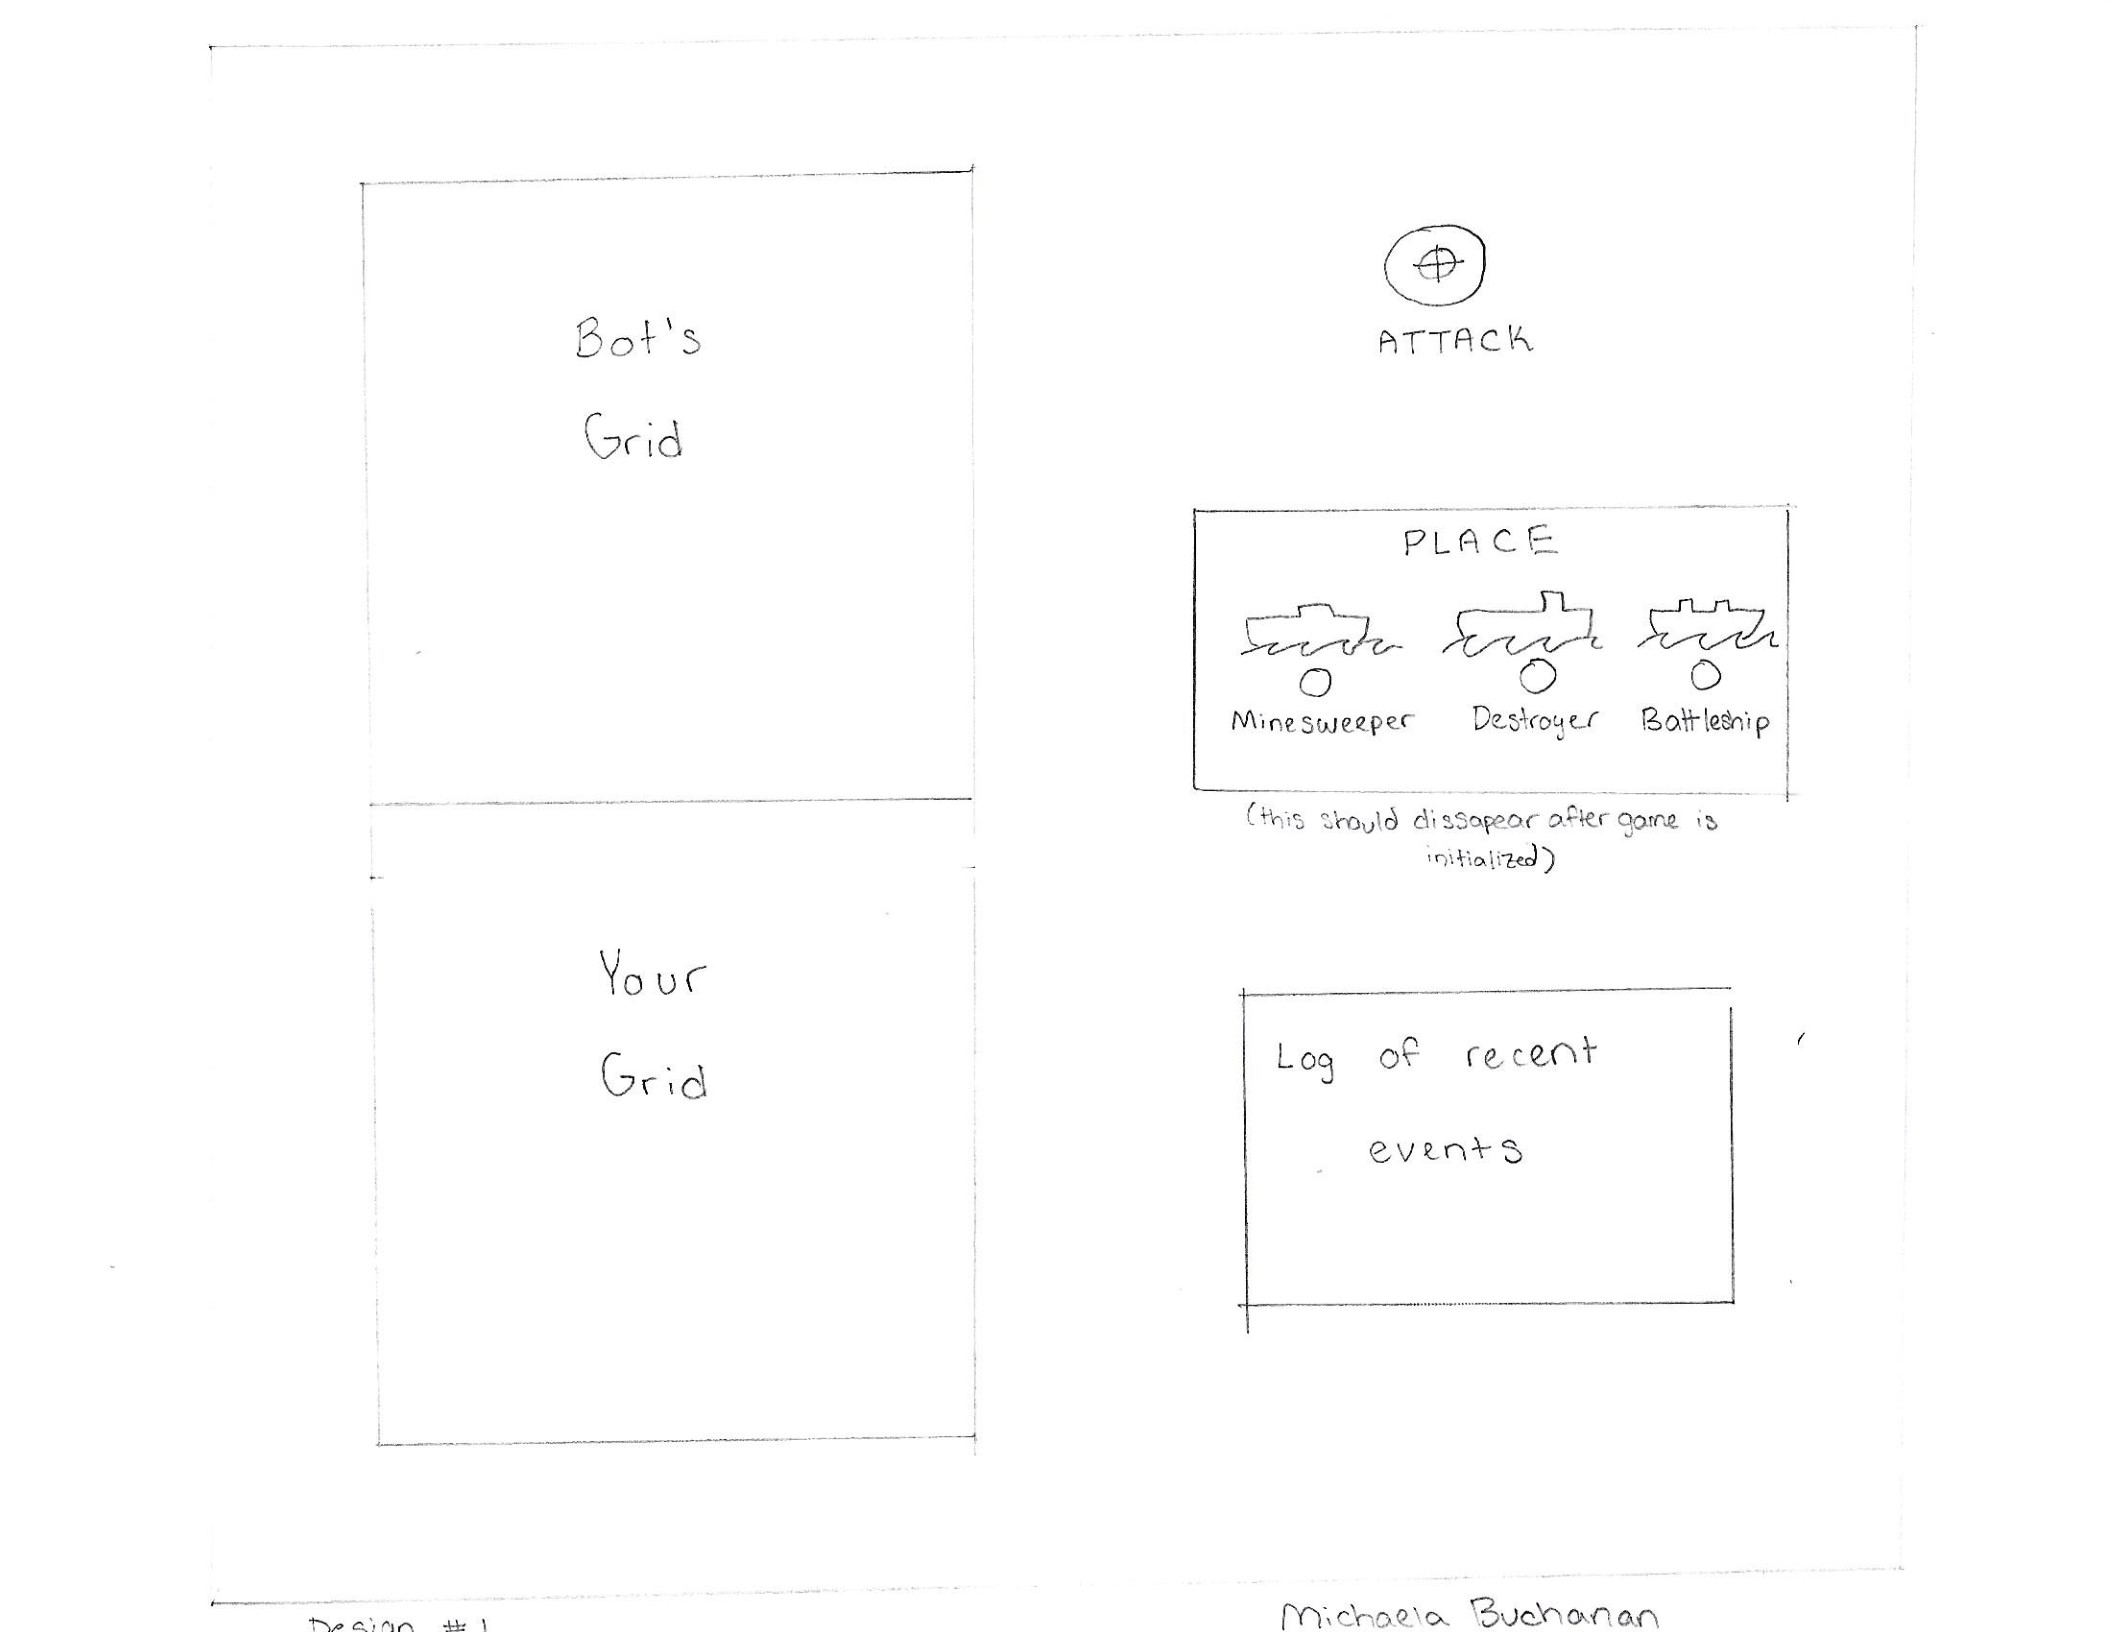 Bot's
Grid
ATTACK
PLACE
Minesweeper Destroyer Battleship
(this should dissapear after game is
initialized)
Your
Grid
Log of recent
events
Design #1
Michaela Buchanan